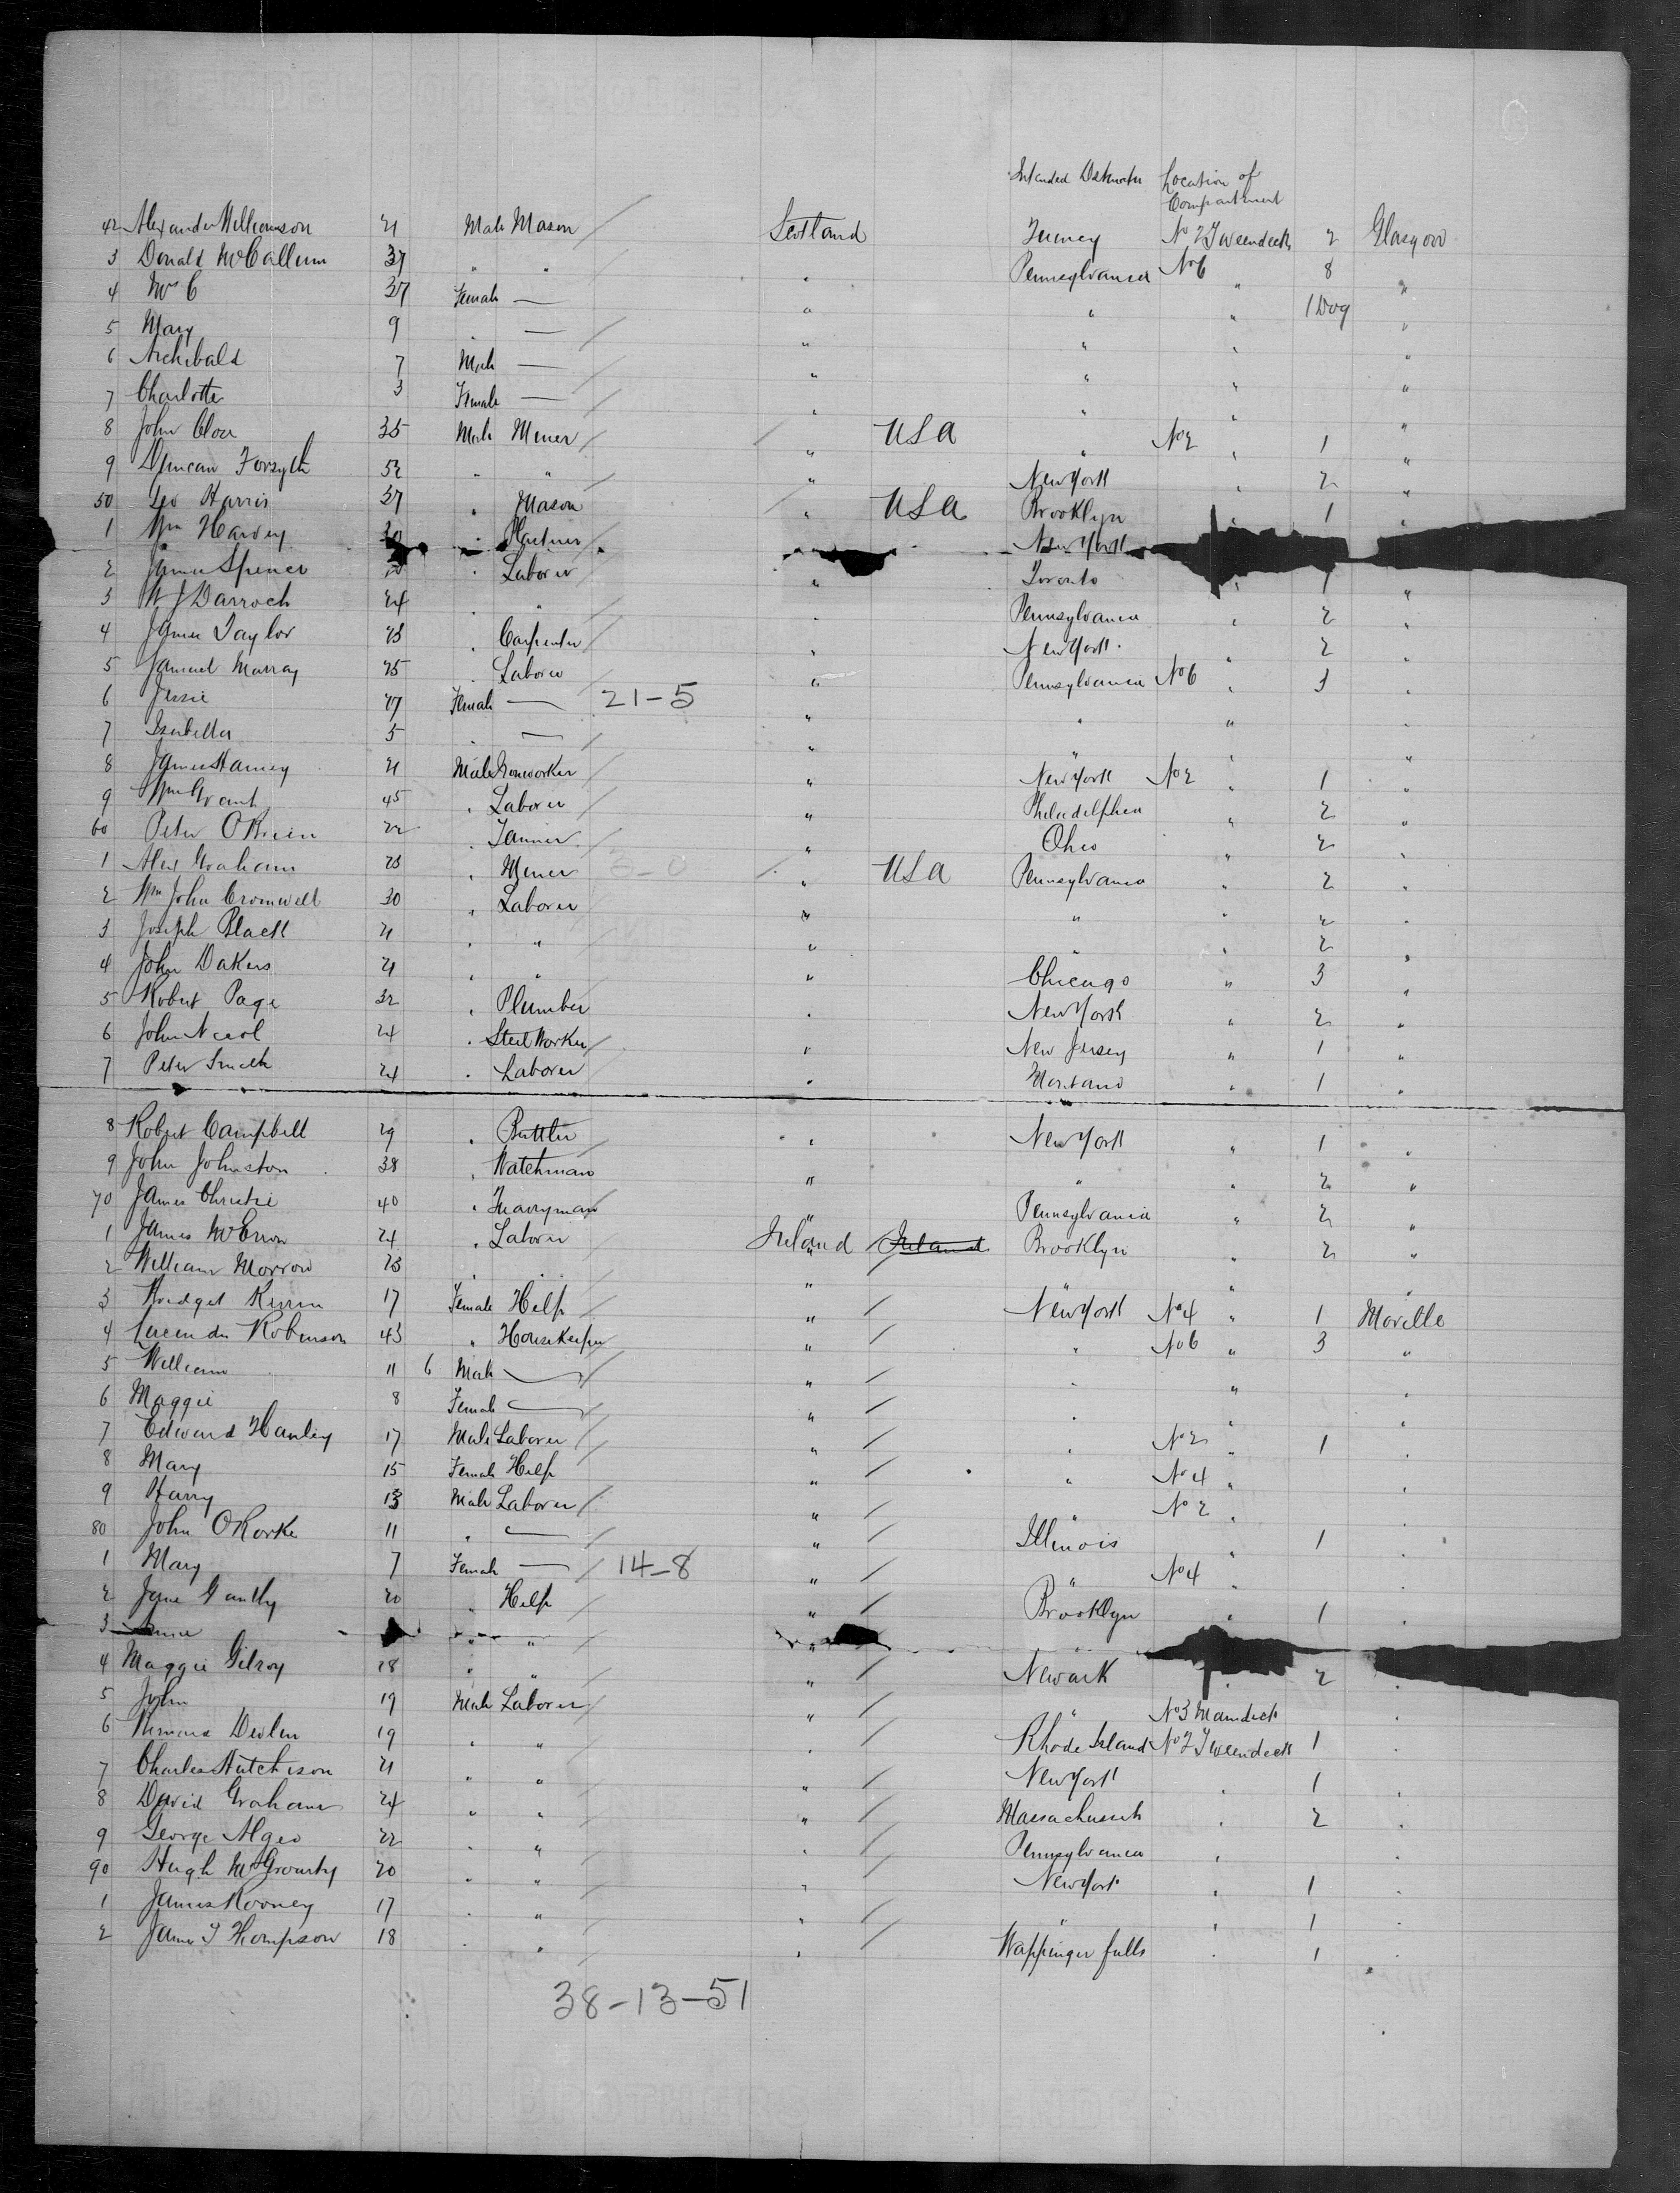 Intended Destination Location of
Compartment
42 Alexander Williamson 21 Male Mason / Scotland No 2 Tweendeck 2 Glasgow
3 Donald McCallum 37 " " / " Pennsylvania No 6 " 8 "
4 Mrs C 37 Female — " " " 1 Dog "
5 Mary 9 " — / " " " "
6 Archibald 7 Male — / " " " "
7 Charlotte 3 Female — / " " " "
8 John 35 Male Miner / / " USA " No 2 " 1 "
9 Duncan Forsyth 52 " " / " New York " 2 "
50 Geo Harris 37 " Mason / " USA Brooklyn " 1 "
1 Wm Harvey 30 " / New York
2 James Spence " Laborer / " Toronto " 1 "
3 W J Darroch 24 " " / " Pennsylvania " 2 "
4 James Taylor 23 " Carpenter / " New York " 2 "
5 Samuel Murray 25 " Laborer / " Pennsylvania No 6 " 3 "
6 Jessie 27 Female — 21-5 " " " "
7 Isabella 5 " — / " " " "
8 James 21 Male Ironworker / " New York No 2 1 "
9 Wm Grant 45 " Laborer / " Philadelphia " 2 "
60 Peter OBrien 22 " Tanner / " Ohio " 2 "
1 Alex Graham 23 " Miner / " USA Pennsylvania " 2 "
2 Wm John Cromwell 30 " Laborer / " " " 2 "
3 Joseph Black 21 " " / " " " 2 "
4 John Dakers 21 " " / " Chicago " 3 "
5 Robert Page 32 " Plumber / " New York " 2 "
6 John Nicol 24 " Steel Worker / " New Jersey " 1 "
7 Peter Smith 24 " Laborer / " Montana " 1 "
8 Robert Campbell 29 " Buttler / " New York " 1 "
9 John Johnston 38 " Watchman " " " 2 "
70 James Christie 40 " Quarryman / " Pennsylvania " 2 "
1 James 24 " Laborer / Ireland Ireland Brooklyn " 2 "
2 William Morrow 23 " " / " " " "
3 Bridget 17 Female Help / " / New York No 4 " 1 Moville
4 Lucinda Robinson 43 " Housekeeper / " / " No 6 " 3 "
5 William 11 6 Male — / " / " " "
6 Maggie 8 Female — / " / " " "
7 Edward Hanley 17 Male Laborer / " / " No 2 " 1 "
8 Mary 15 Female Help " / " No 4 " "
9 Harry 13 Male Laborer / " / " No 2 " "
80 John ORorke 11 " — / " / Illinois " 1 "
1 Mary 7 Female — / 14-8 " / " No 4 " "
2 Jane 20 " Help / " / Brooklyn " 1 "
3 " " / "
4 Maggie Gilroy 18 " " / " / Newark " 2 "
5 John 19 Male Laborer / " / " No 3 Maindeck "
6 Bernard Devlin 19 " " / " / Rhode Island No 2 Tweendeck 1 "
7 Charles Hutchison 21 " " / " / New York " 1 "
8 David Graham 24 " " / " / Massachusetts " 2 "
9 George Algeo 22 " " / " / Pennsylvania " "
90 Hugh 20 " " / " / New York " 1 "
1 James Rooney 17 " " / " / " " 1 "
2 James T Thompson 18 " " / " / Wappinger falls " 1 "
38-13-51